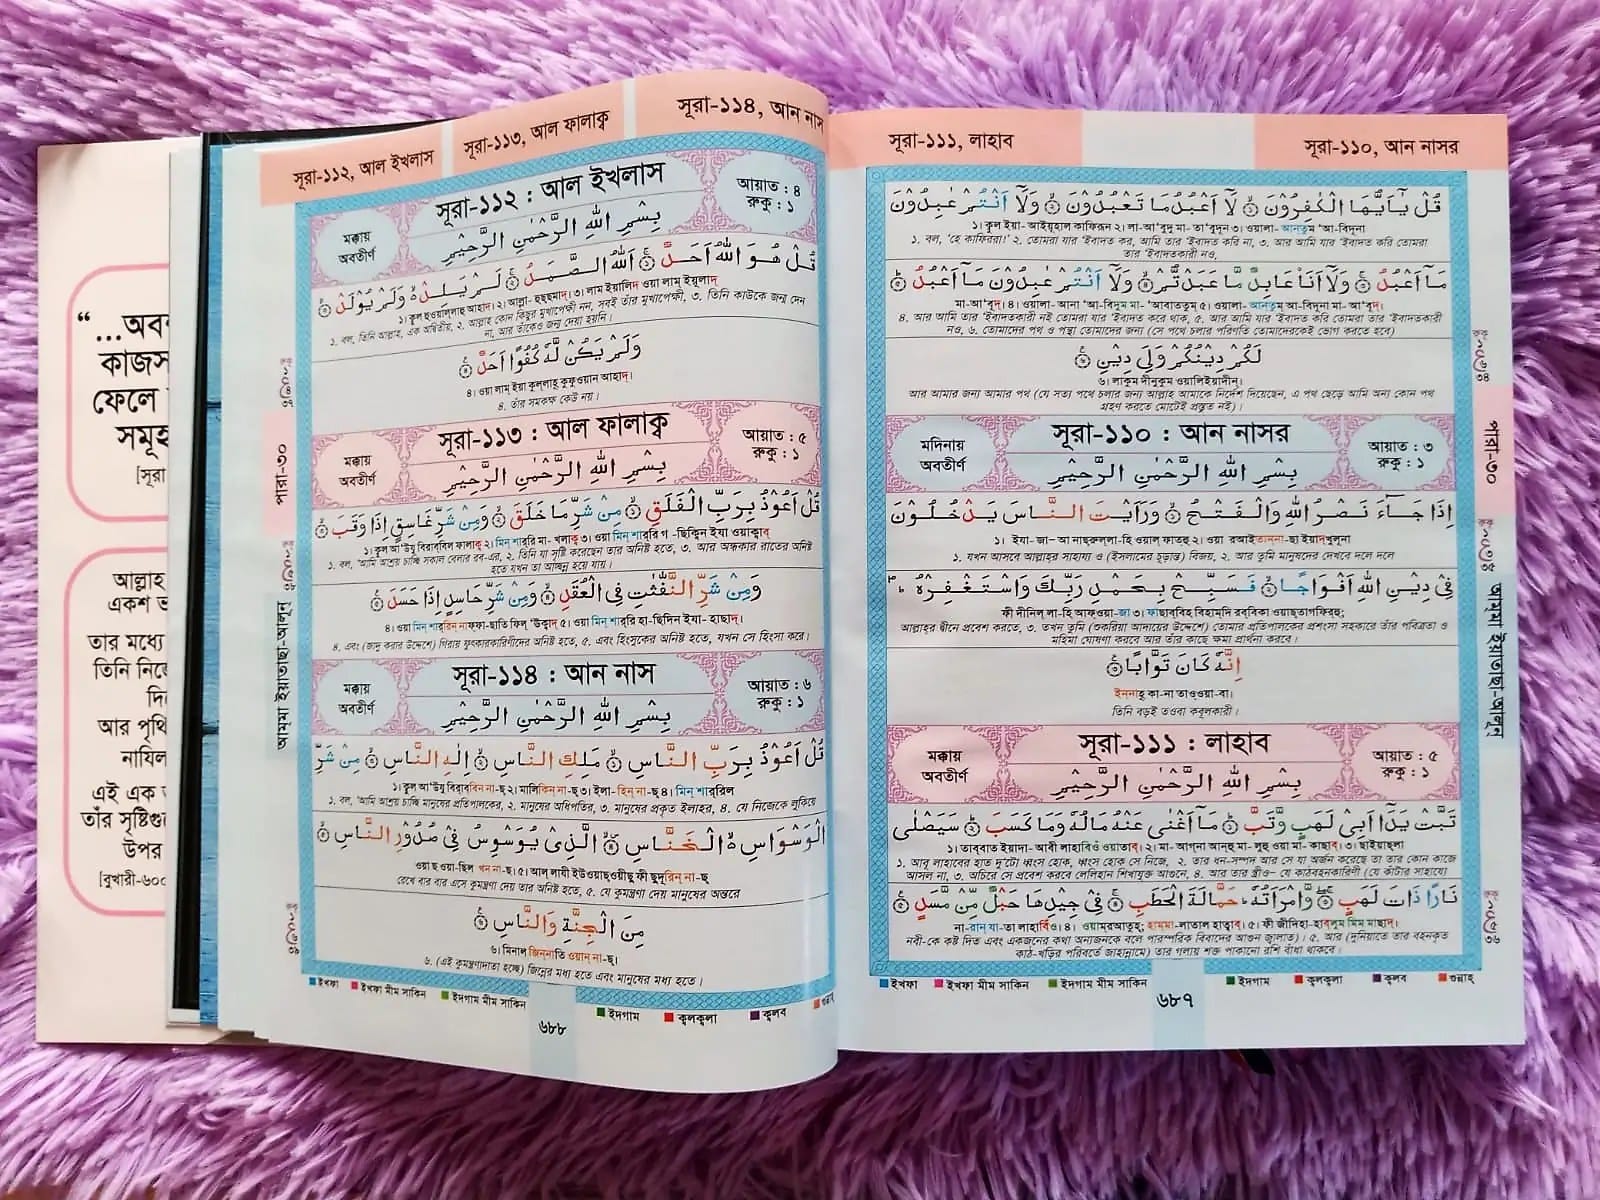 সূরা-১১১, লাহাব
সূরা-১১০, আন নাসর
قُلْ يٰٓاَيُّهَا الْكٰفِرُوْنَ ۙ لَآ اَعْبُدُ مَا تَعْبُدُوْنَ ۙ وَلَآ اَنْتُمْ عٰبِدُوْنَ
১। কুল ইয়া- আইয়ুহাল কাফিরূন ২। লা-আ'বুদু মা- তা'বুদূন ৩। ওয়ালা- আনতুম 'আ-বিদূনা
১. বল, 'হে কাফিররা!' ২. তোমরা যার 'ইবাদত কর, আমি তার 'ইবাদত করি না, ৩. আর আমি যার 'ইবাদত করি তোমরা
তার 'ইবাদতকারী নও,
مَآ اَعْبُدُ ۚ وَلَآ اَنَا عَابِدٌ مَّا عَبَدْتُّمْ ۙ وَلَآ اَنْتُمْ عٰبِدُوْنَ مَآ اَعْبُدُ
মা-আ'বুদ্। ৪। ওয়ালা- আনা 'আ-বিদুম মা- 'আবাততুম ৫। ওয়ালা- আনতুম আ-বিদূনা মা- আ'বুদ্।
৪. আর আমি তার 'ইবাদতকারী নই তোমরা যার 'ইবাদত করে থাক, ৫. আর আমি যার 'ইবাদত করি তোমরা তার 'ইবাদতকারী
নও, ৬. তোমাদের পথ ও পন্থা তোমাদের জন্য (সে পথে চলার পরিণতি তোমাদেরকেই ভোগ করতে হবে)
لَكُمْ دِيْنُكُمْ وَلِيَ دِيْنِ
৬। লাকুম দীনুকুম ওয়ালিইয়াদীন্।
আর আমার জন্য আমার পথ (যে সত্য পথে চলার জন্য আল্লাহ আমাকে নির্দেশ দিয়েছেন, এ পথ ছেড়ে আমি অন্য কোন পথ
গ্রহণ করতে মোটেই প্রস্তুত নই)।
মদিনায়
অবতীর্ণ
সূরা-১১০ : আন নাসর
আয়াত : ৩
রুকু : ১
بِسْمِ اللهِ الرَّحْمٰنِ الرَّحِيْمِ
اِذَا جَآءَ نَصْرُ اللهِ وَالْفَتْحُ ۙ وَرَاَيْتَ النَّاسَ يَدْخُلُوْنَ
১। ইযা- জা- আ নাছ্রুল্লা-হি ওয়াল্ ফাত্হু ২। ওয়া রআইতান্না-ছা ইয়াদখুলূনা
১. যখন আসবে আল্লাহ্‌র সাহায্য ও (ইসলামের চূড়ান্ত) বিজয়, ২. আর তুমি মানুষদের দেখবে দলে দলে
فِيْ دِيْنِ اللهِ اَفْوَاجًا ۙ فَسَبِّحْ بِحَمْدِ رَبِّكَ وَاسْتَغْفِرْهُ
ফী দীনিল্ লা-হি আফ্ওয়া-জা ৩। ফাছাব্বিহ্ বিহাম্দি রব্বিকা ওয়াছ্তাগফিরহু;
আল্লাহ্‌র দ্বীনে প্রবেশ করতে, ৩. তখন তুমি (শুকরিয়া আদায়ের উদ্দেশে) তোমার প্রতিপালকের প্রশংসা সহকারে তাঁর পবিত্রতা ও
মহিমা ঘোষণা করবে আর তাঁর কাছে ক্ষমা প্রার্থনা করবে।
اِنَّهٗ كَانَ تَوَّابًا
ইন্নাহূ কা-না তাওওয়া-বা।
তিনি বড়ই তওবা কবূলকারী।
মক্কায়
অবতীর্ণ
সূরা-১১১ : লাহাব
আয়াত : ৫
রুকু : ১
بِسْمِ اللهِ الرَّحْمٰنِ الرَّحِيْمِ
تَبَّتْ يَدَآ اَبِيْ لَهَبٍ وَّتَبَّ ۙ مَآ اَغْنٰى عَنْهُ مَالُهٗ وَمَا كَسَبَ ۙ سَيَصْلٰى
১। তাব্বাত ইয়াদা- আবী লাহাবিওঁ ওয়াতাব্। ২। মা- আগ্না আনহু মা- লুহূ ওয়া মা- কাছাব্। ৩। ছাইয়াছলা
১. আবু লাহাবের হাত দু'টো ধ্বংস হোক, ধ্বংস হোক সে নিজে, ২. তার ধন-সম্পদ আর সে যা অর্জন করেছে তা তার কোন কাজে
আসল না, ৩. অচিরে সে প্রবেশ করবে লেলিহান শিখাযুক্ত আগুনে, ৪. আর তার স্ত্রীও- যে কাঠবহনকারিণী (যে কাঁটার সাহায্যে)
نَارًا ذَاتَ لَهَبٍ ۙ وَّامْرَاَتُهٗ حَمَّالَةَ الْحَطَبِ ۙ فِيْ جِيْدِهَا حَبْلٌ مِّنْ مَّسَدٍ
না-রান্ যা-তা লাহাবিওঁ। ৪। ওয়ামরআতুহূ; হাম্মা-লাতাল হাত্বাব্। ৫। ফী জীদিহা-হাব্লুম মিম মাছাদ্।
নবী-কে কষ্ট দিত এবং একজনের কথা অন্যজনকে বলে পারস্পরিক বিবাদের আগুন জ্বালাত)। ৫. আর (দুনিয়াতে তার বহনকৃত
কাঠ-খড়ির পরিবর্তে জাহান্নামে) তার গলায় শক্ত পাকানো রশি বাঁধা থাকবে।
ইখফা ইখফা মীম সাকিন ইদগাম মীম সাকিন ইদগাম ক্বলক্বলা ক্বলব গুন্নাহ্
৬৮৭
পারা-৩০
আম্মা ইয়াতাছা-আলূন
সূরা-১১২, আল ইখলাস
সূরা-১১৩, আল ফালাক্ব
সূরা-১১৪, আন নাস
মক্কায়
অবতীর্ণ
সূরা-১১২ : আল ইখলাস
আয়াত : ৪
রুকু : ১
بِسْمِ اللهِ الرَّحْمٰنِ الرَّحِيْمِ
قُلْ هُوَ اللهُ اَحَدٌ ۚ اَللهُ الصَّمَدُ ۚ لَمْ يَلِدْ ۙ وَلَمْ يُوْلَدْ
১। কুল হুওয়াল্লাহু আহাদ্। ২। আল্লা- হুছ্ছমাদ্। ৩। লাম ইয়ালিদ ওয়া লাম্ ইয়ূলাদ্
১. বল, তিনি আল্লাহ, এক অদ্বিতীয়, ২. আল্লাহ কোন কিছুর মুখাপেক্ষী নন, সবই তাঁর মুখাপেক্ষী, ৩. তিনি কাউকে জন্ম দেন
না, আর তাঁকেও জন্ম দেয়া হয়নি।
وَلَمْ يَكُنْ لَّهٗ كُفُوًا اَحَدٌ
৪। ওয়া লাম্ ইয়া কুল্লাহূ কুফুওয়ান আহাদ্।
৪. তাঁর সমকক্ষ কেউ নয়।
মক্কায়
অবতীর্ণ
সূরা-১১৩ : আল ফালাক্ব
আয়াত : ৫
রুকু : ১
بِسْمِ اللهِ الرَّحْمٰنِ الرَّحِيْمِ
قُلْ اَعُوْذُ بِرَبِّ الْفَلَقِ ۙ مِنْ شَرِّ مَا خَلَقَ ۙ وَمِنْ شَرِّ غَاسِقٍ اِذَا وَقَبَ
১। কুল আ'ঊযু বিরাব্বিল ফালাক্ব ২। মিন্ শার্‌রি মা- খলাক্ব ৩। ওয়া মিন্ শার্‌রি গ -ছিক্বিন ইযা ওয়াক্বাব্
১. বল, 'আমি আশ্রয় চাচ্ছি সকাল বেলার রব-এর, ২. তিনি যা সৃষ্টি করেছেন তার অনিষ্ট হতে, ৩. আর অন্ধকার রাতের অনিষ্ট
হতে যখন তা আচ্ছন্ন হয়ে যায়।
وَمِنْ شَرِّ النَّفّٰثٰتِ فِي الْعُقَدِ ۙ وَمِنْ شَرِّ حَاسِدٍ اِذَا حَسَدَ
৪। ওয়া মিন শার্‌রিন্ নাফ্ফা-ছাতি ফিল্ 'উক্বাদ্ ৫। ওয়া মিন্ শার্‌রি হা-ছিদিন ইযা- হাছাদ্।
৪. এবং (জাদু করার উদ্দেশে) গিরায় ফুৎকারকারিণীদের অনিষ্ট হতে, ৫. এবং হিংসুকের অনিষ্ট হতে, যখন সে হিংসা করে।
মক্কায়
অবতীর্ণ
সূরা-১১৪ : আন নাস
আয়াত : ৬
রুকু : ১
بِسْمِ اللهِ الرَّحْمٰنِ الرَّحِيْمِ
قُلْ اَعُوْذُ بِرَبِّ النَّاسِ ۙ مَلِكِ النَّاسِ ۙ اِلٰهِ النَّاسِ ۙ مِنْ شَرِّ
১। কুল আ'ঊযু বিরাব্বিন না-ছ্ ২। মালিকিন না-ছ্ ৩। ইলা- হিন্ না-ছ্ ৪। মিন্ শার্‌রিল
১. বল, 'আমি আশ্রয় চাচ্ছি মানুষের প্রতিপালকের, ২. মানুষের অধিপতির, ৩. মানুষের প্রকৃত ইলাহর, ৪. যে নিজেকে লুকিয়ে
الْوَسْوَاسِ ۙ الْخَنَّاسِ ۙ الَّذِيْ يُوَسْوِسُ فِيْ صُدُوْرِ النَّاسِ
ওয়া ছ্ওয়া-ছিল খন না-ছ্। ৫। আল্ লাযী ইউওয়াছ্ওয়ীছু ফী ছুদূরিন্ না-ছ্
রেখে বার বার এসে কুমন্ত্রণা দেয় তার অনিষ্ট হতে, ৫. যে কুমন্ত্রণা দেয় মানুষের অন্তরে
مِنَ الْجِنَّةِ وَالنَّاسِ
৬। মিনাল জিন্নাতি ওয়ান্ না-ছ্।
৬. (এই কুমন্ত্রণাদাতা হচ্ছে) জিন্নের মধ্য হতে এবং মানুষের মধ্য হতে।
ইখফা ইখফা মীম সাকিন ইদগাম মীম সাকিন ইদগাম ক্বলক্বলা ক্বলব গুন্নাহ্
৬৮৮
পারা-৩০
আম্মা ইয়াতাছা-আলূন
কাজস
ফেলে
সমূহ
[সূরা
আল্লাহ
একশ
তার মধ্যে
তিনি নিজে
আর পৃথি
নাযিল
এই এক
তাঁর সৃষ্টিগু
উপর